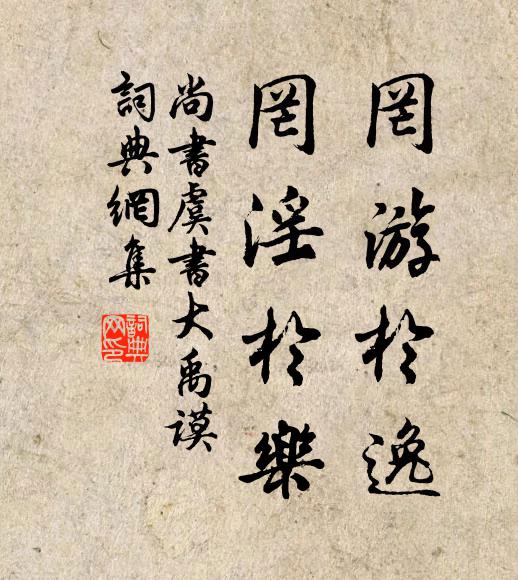 罔游於逸
罔淫於樂
尚書虞書大禹謨
詞典網集
詞典網印